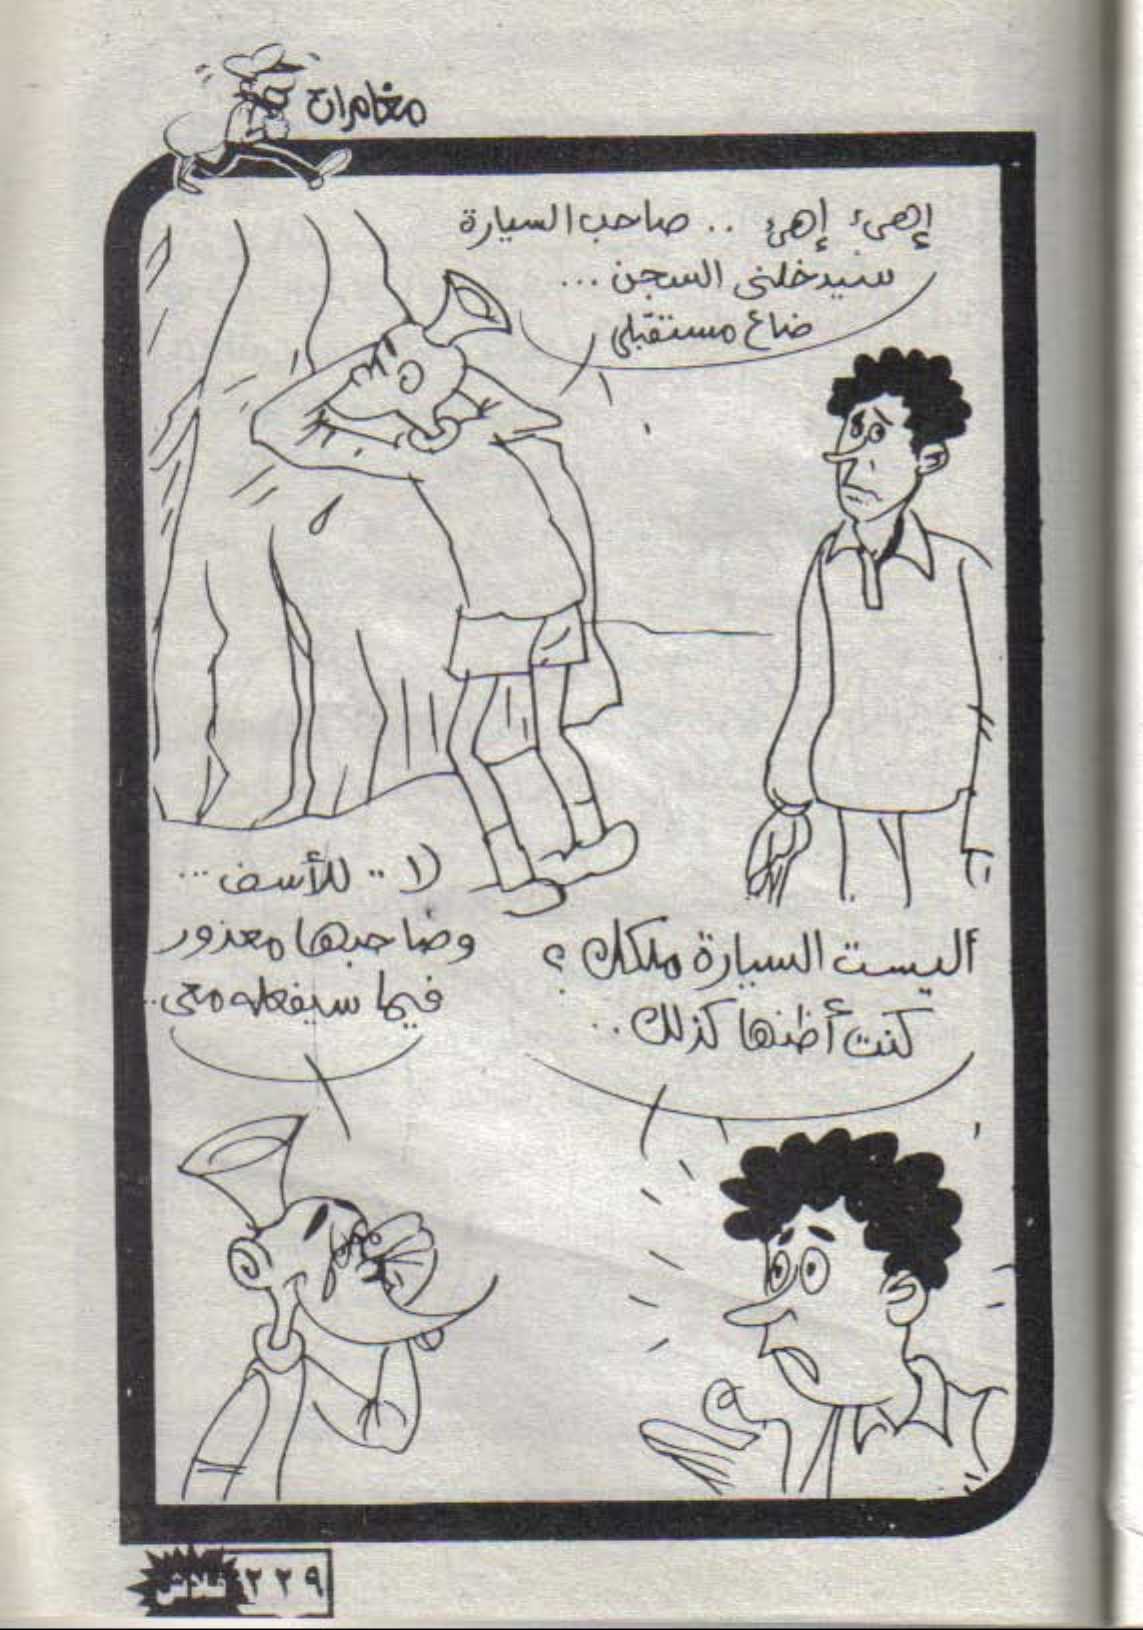 مغامرات
إهئ إهئ .. صاحب السيارة
سيدخلنى السجن ...
ضاع مستقبلى
أليست السيارة ملكك ؟
كنت أظنها كذلك ..
لا .. للأسف ...
وصاحبها معذور
فيما سيفعله معى ..
فلاش ٢٢٩